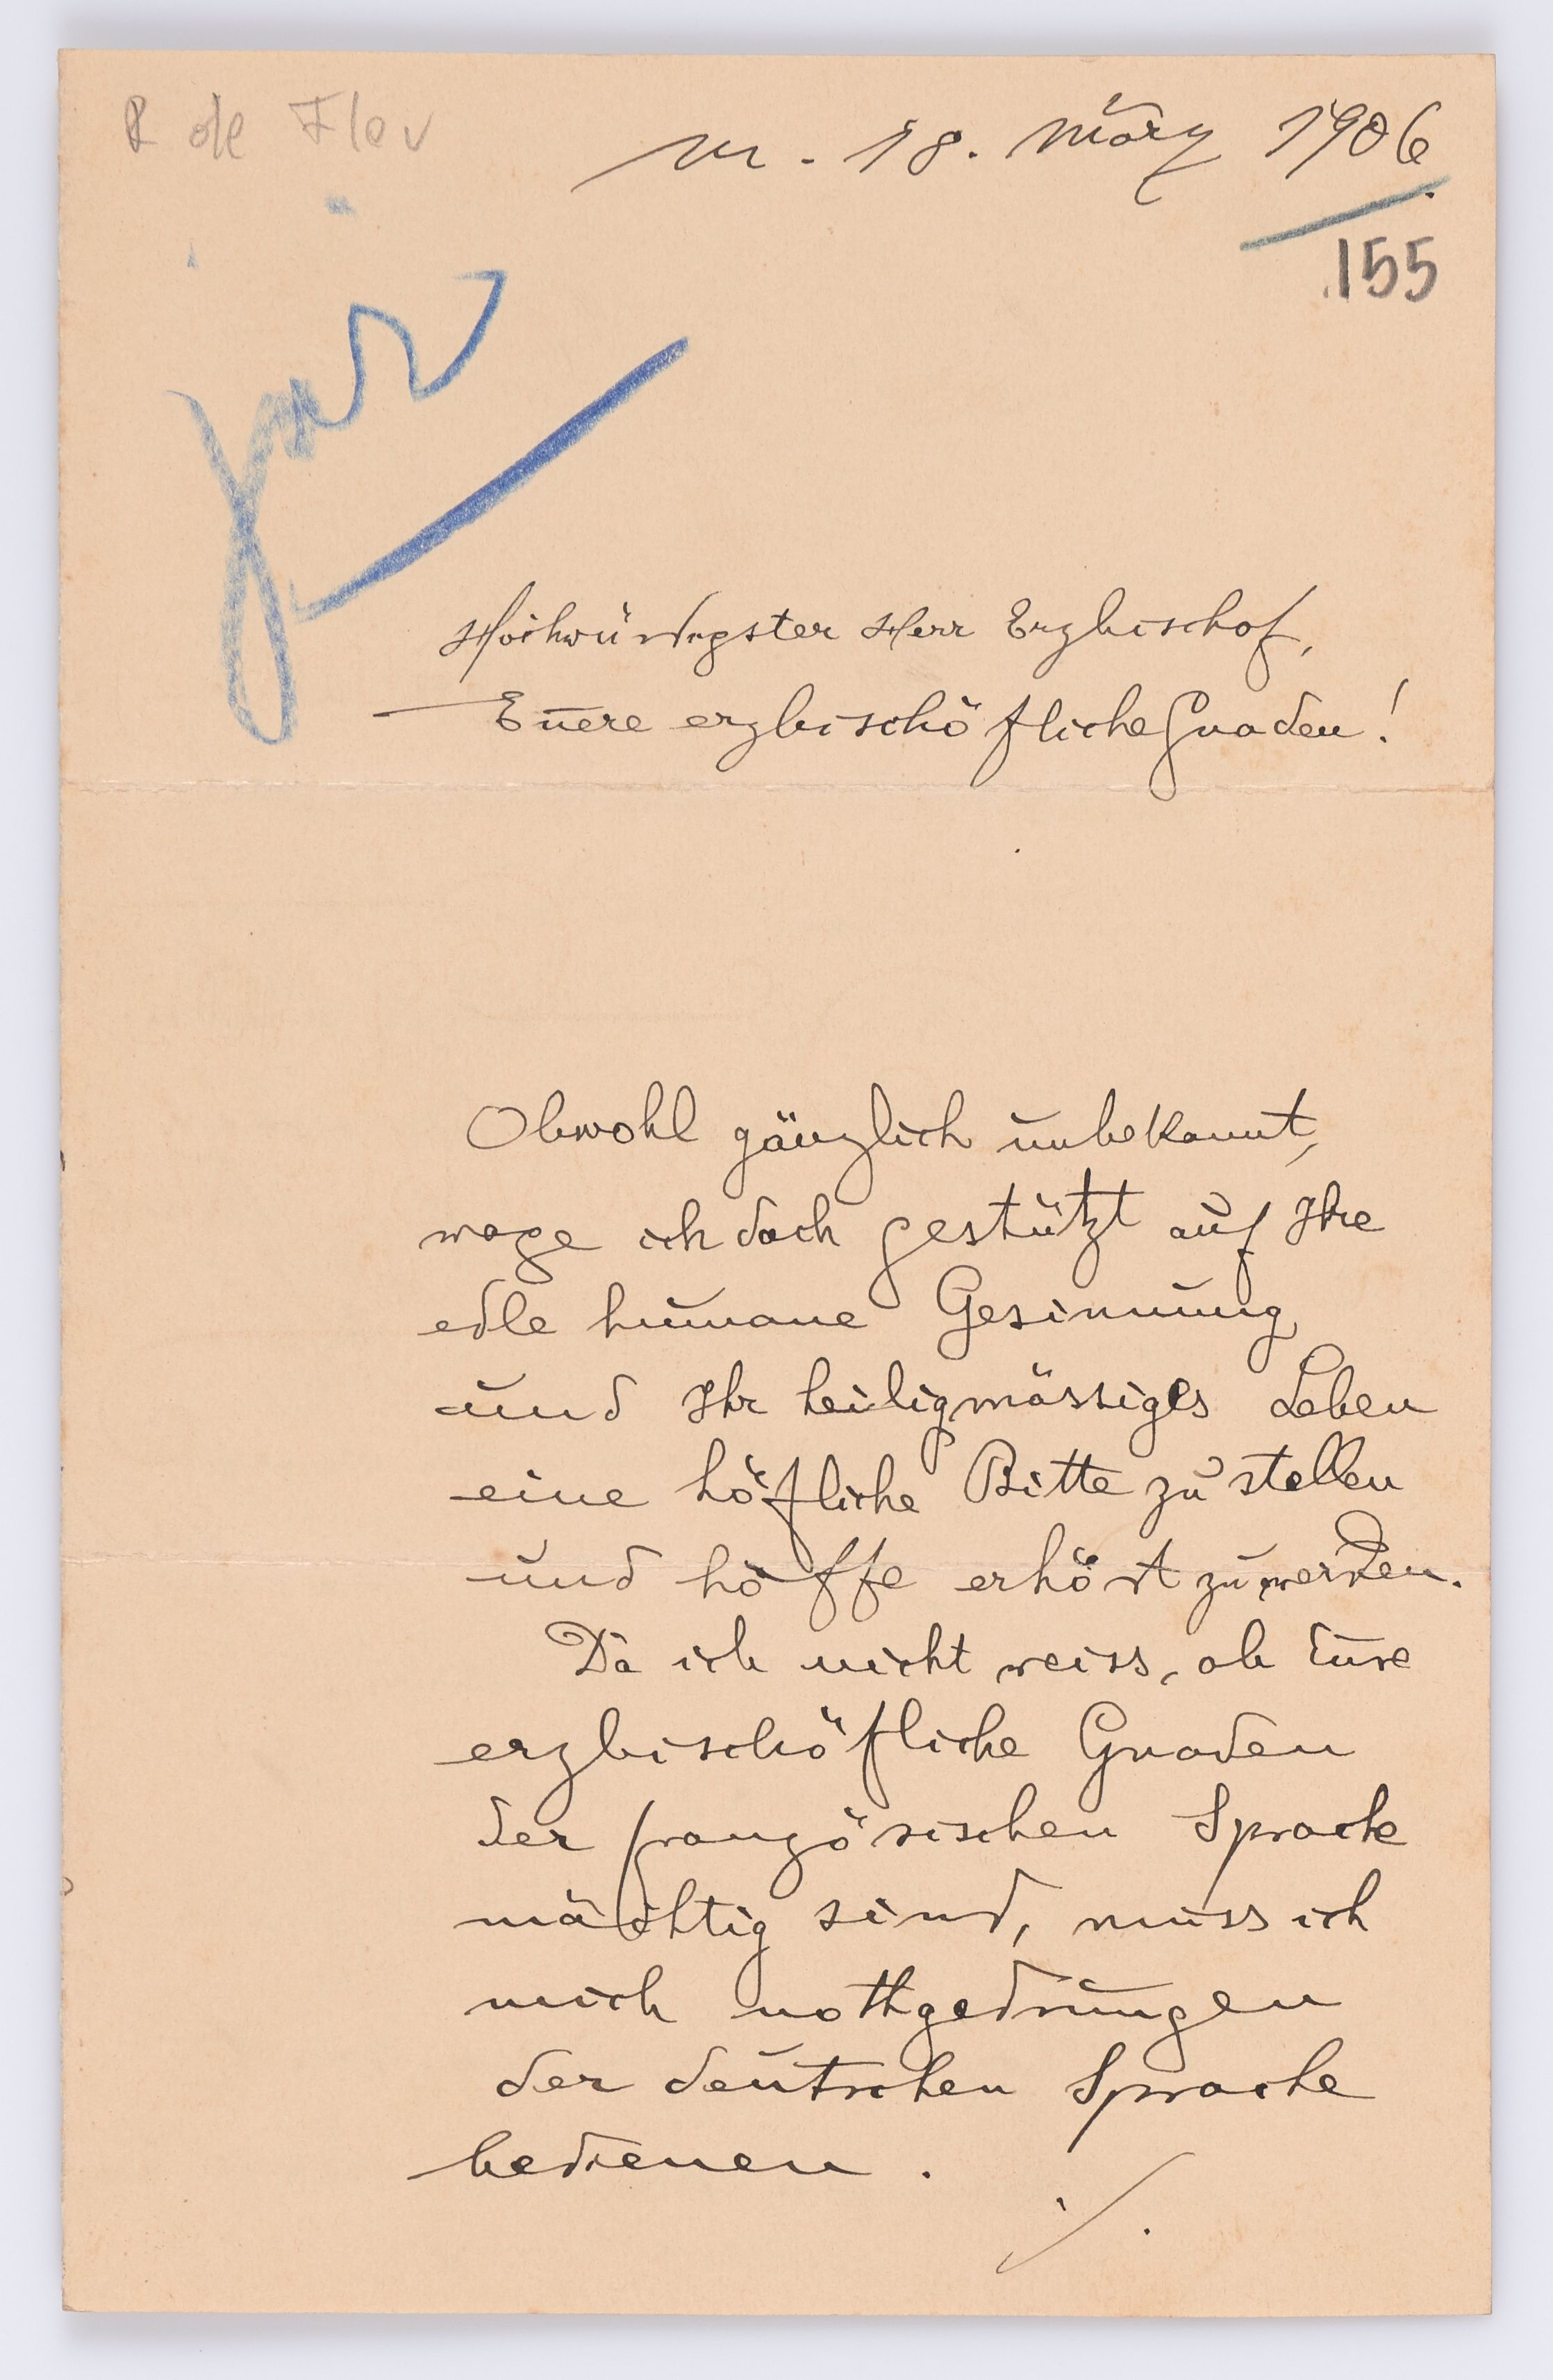 R de Flev
M. 18. März 1906.
155
Hochwürdigster Herr Erzbischof,
Euere erzbischöfliche Gnaden!
Obwohl gänzlich unbekannt,
wage ich doch gestützt auf Ihre
edle humane Gesinnung
und Ihr heiligmässiges Leben
eine höfliche Bitte zu stellen
und hoffe erhört zu werden.
Da ich nicht weiss, ob Eure
erzbischöfliche Gnaden
der französischen Sprache
mächtig sind, muss ich
mich nothgedrungen
der deutschen Sprache
bedienen.
./.